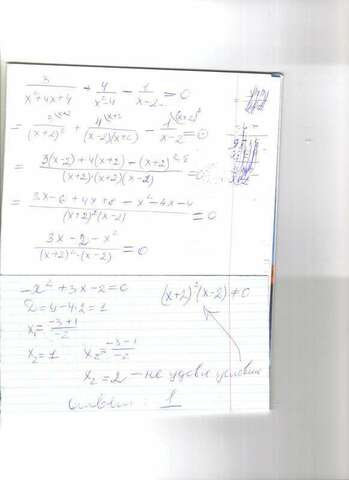 3/(x²+4x+4) + 4/(x²-4) - 1/(x-2) = 0
= 3\x-2/(x+2)² + 4\x+2/(x-2)(x+2) - 1\(x+2)²/(x-2) = 0
= (3(x-2)+4(x+2)-(x+2)²)/((x+2)·(x+2)(x-2)) = 0
= (3x-6+4x+8-x²-4x-4)/((x+2)²(x-2)) = 0
(3x-2-x²)/((x+2)²·(x-2)) = 0
-x²+3x-2=0 (x+2)²(x-2)≠0
D=9-4·2=1
x₁=(-3+1)/-2
x₂=1 x₂=(-3-1)/-2
x₂=2 - не удовл условию
Ответ: 1